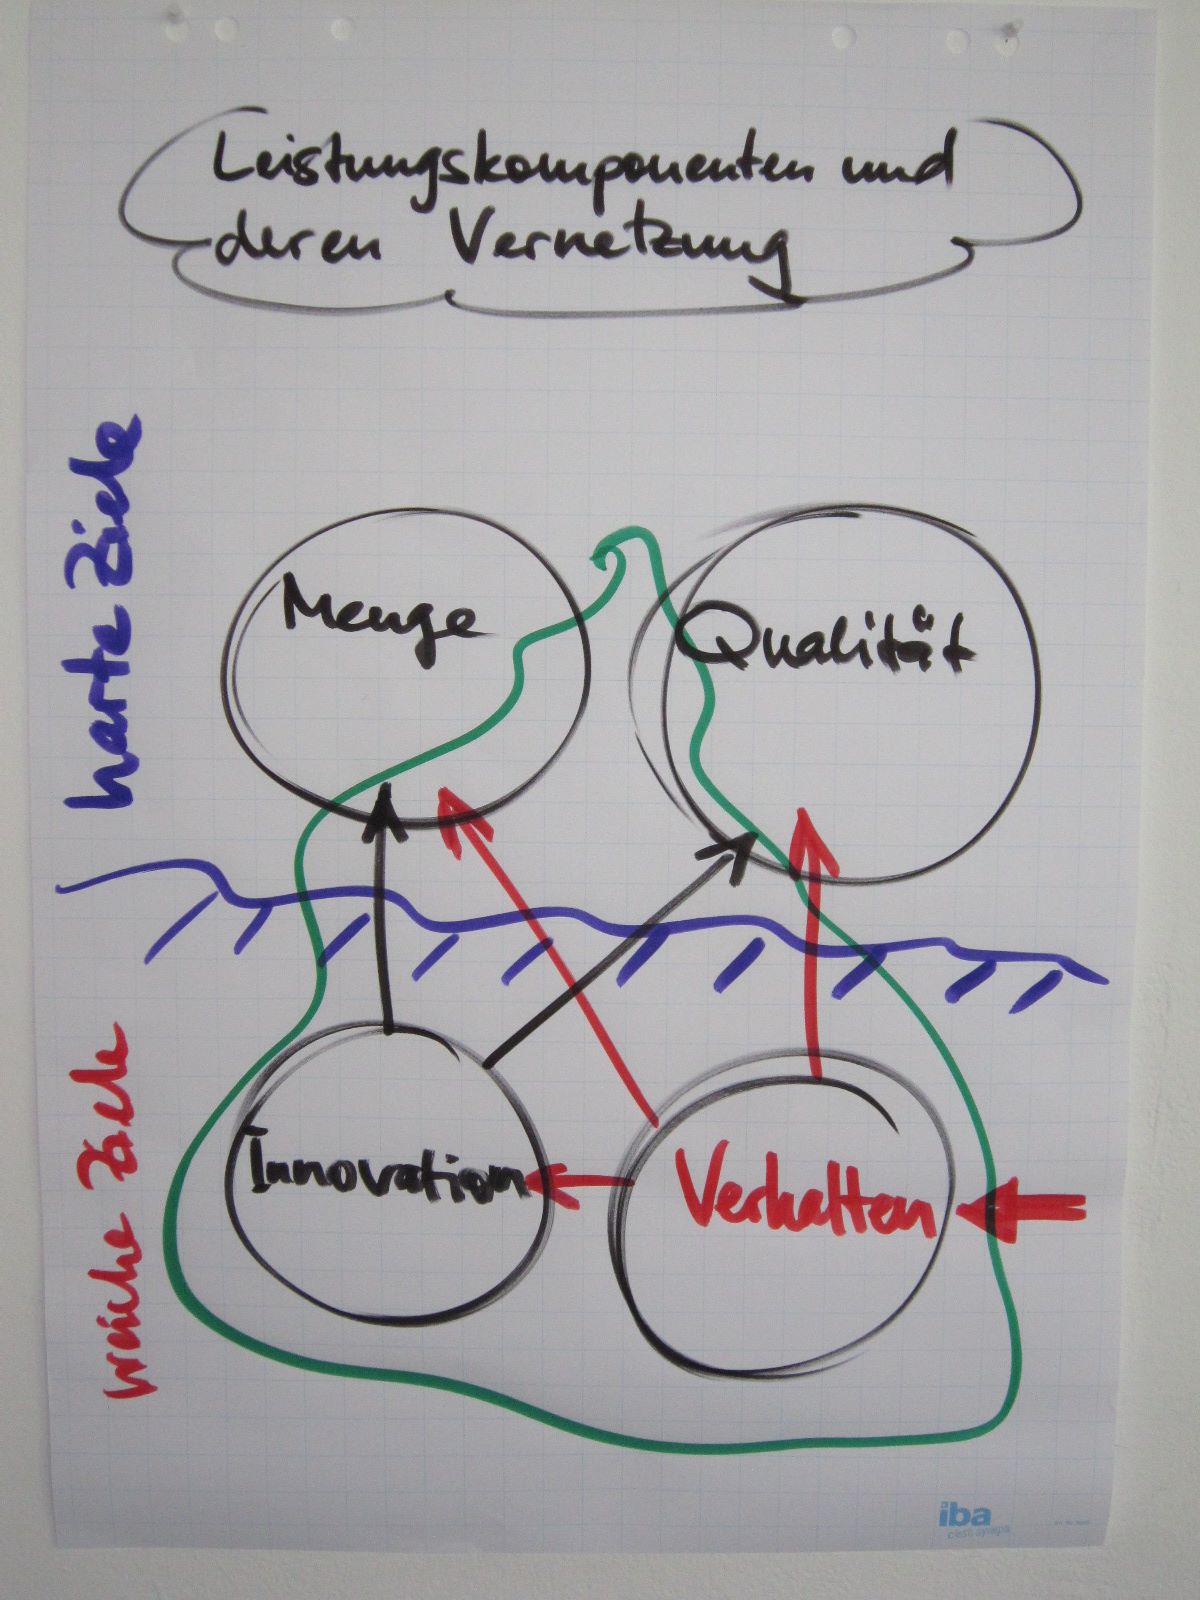 Leistungskomponenten und
deren Vernetzung
harte Ziele
Menge
Qualität
weiche Ziele
Innovation
Verhalten
iba